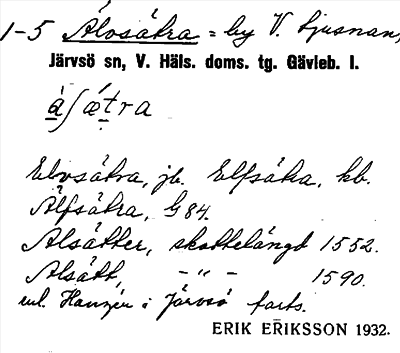 1-5 Älvsätra = by V. Ljusnan,
Järvsö sn, V. Häls. doms. tg. Gävleb. l.
a̠ʃætra
Elvsätra, jb. Elfsätra, kb.
Älfsätra, G 84.
Alsätter, skattelängd 1552.
Alsätt, - " - 1590.
enl. Hanzén i Järvsö farts.
ERIK ERIKSSON 1932.